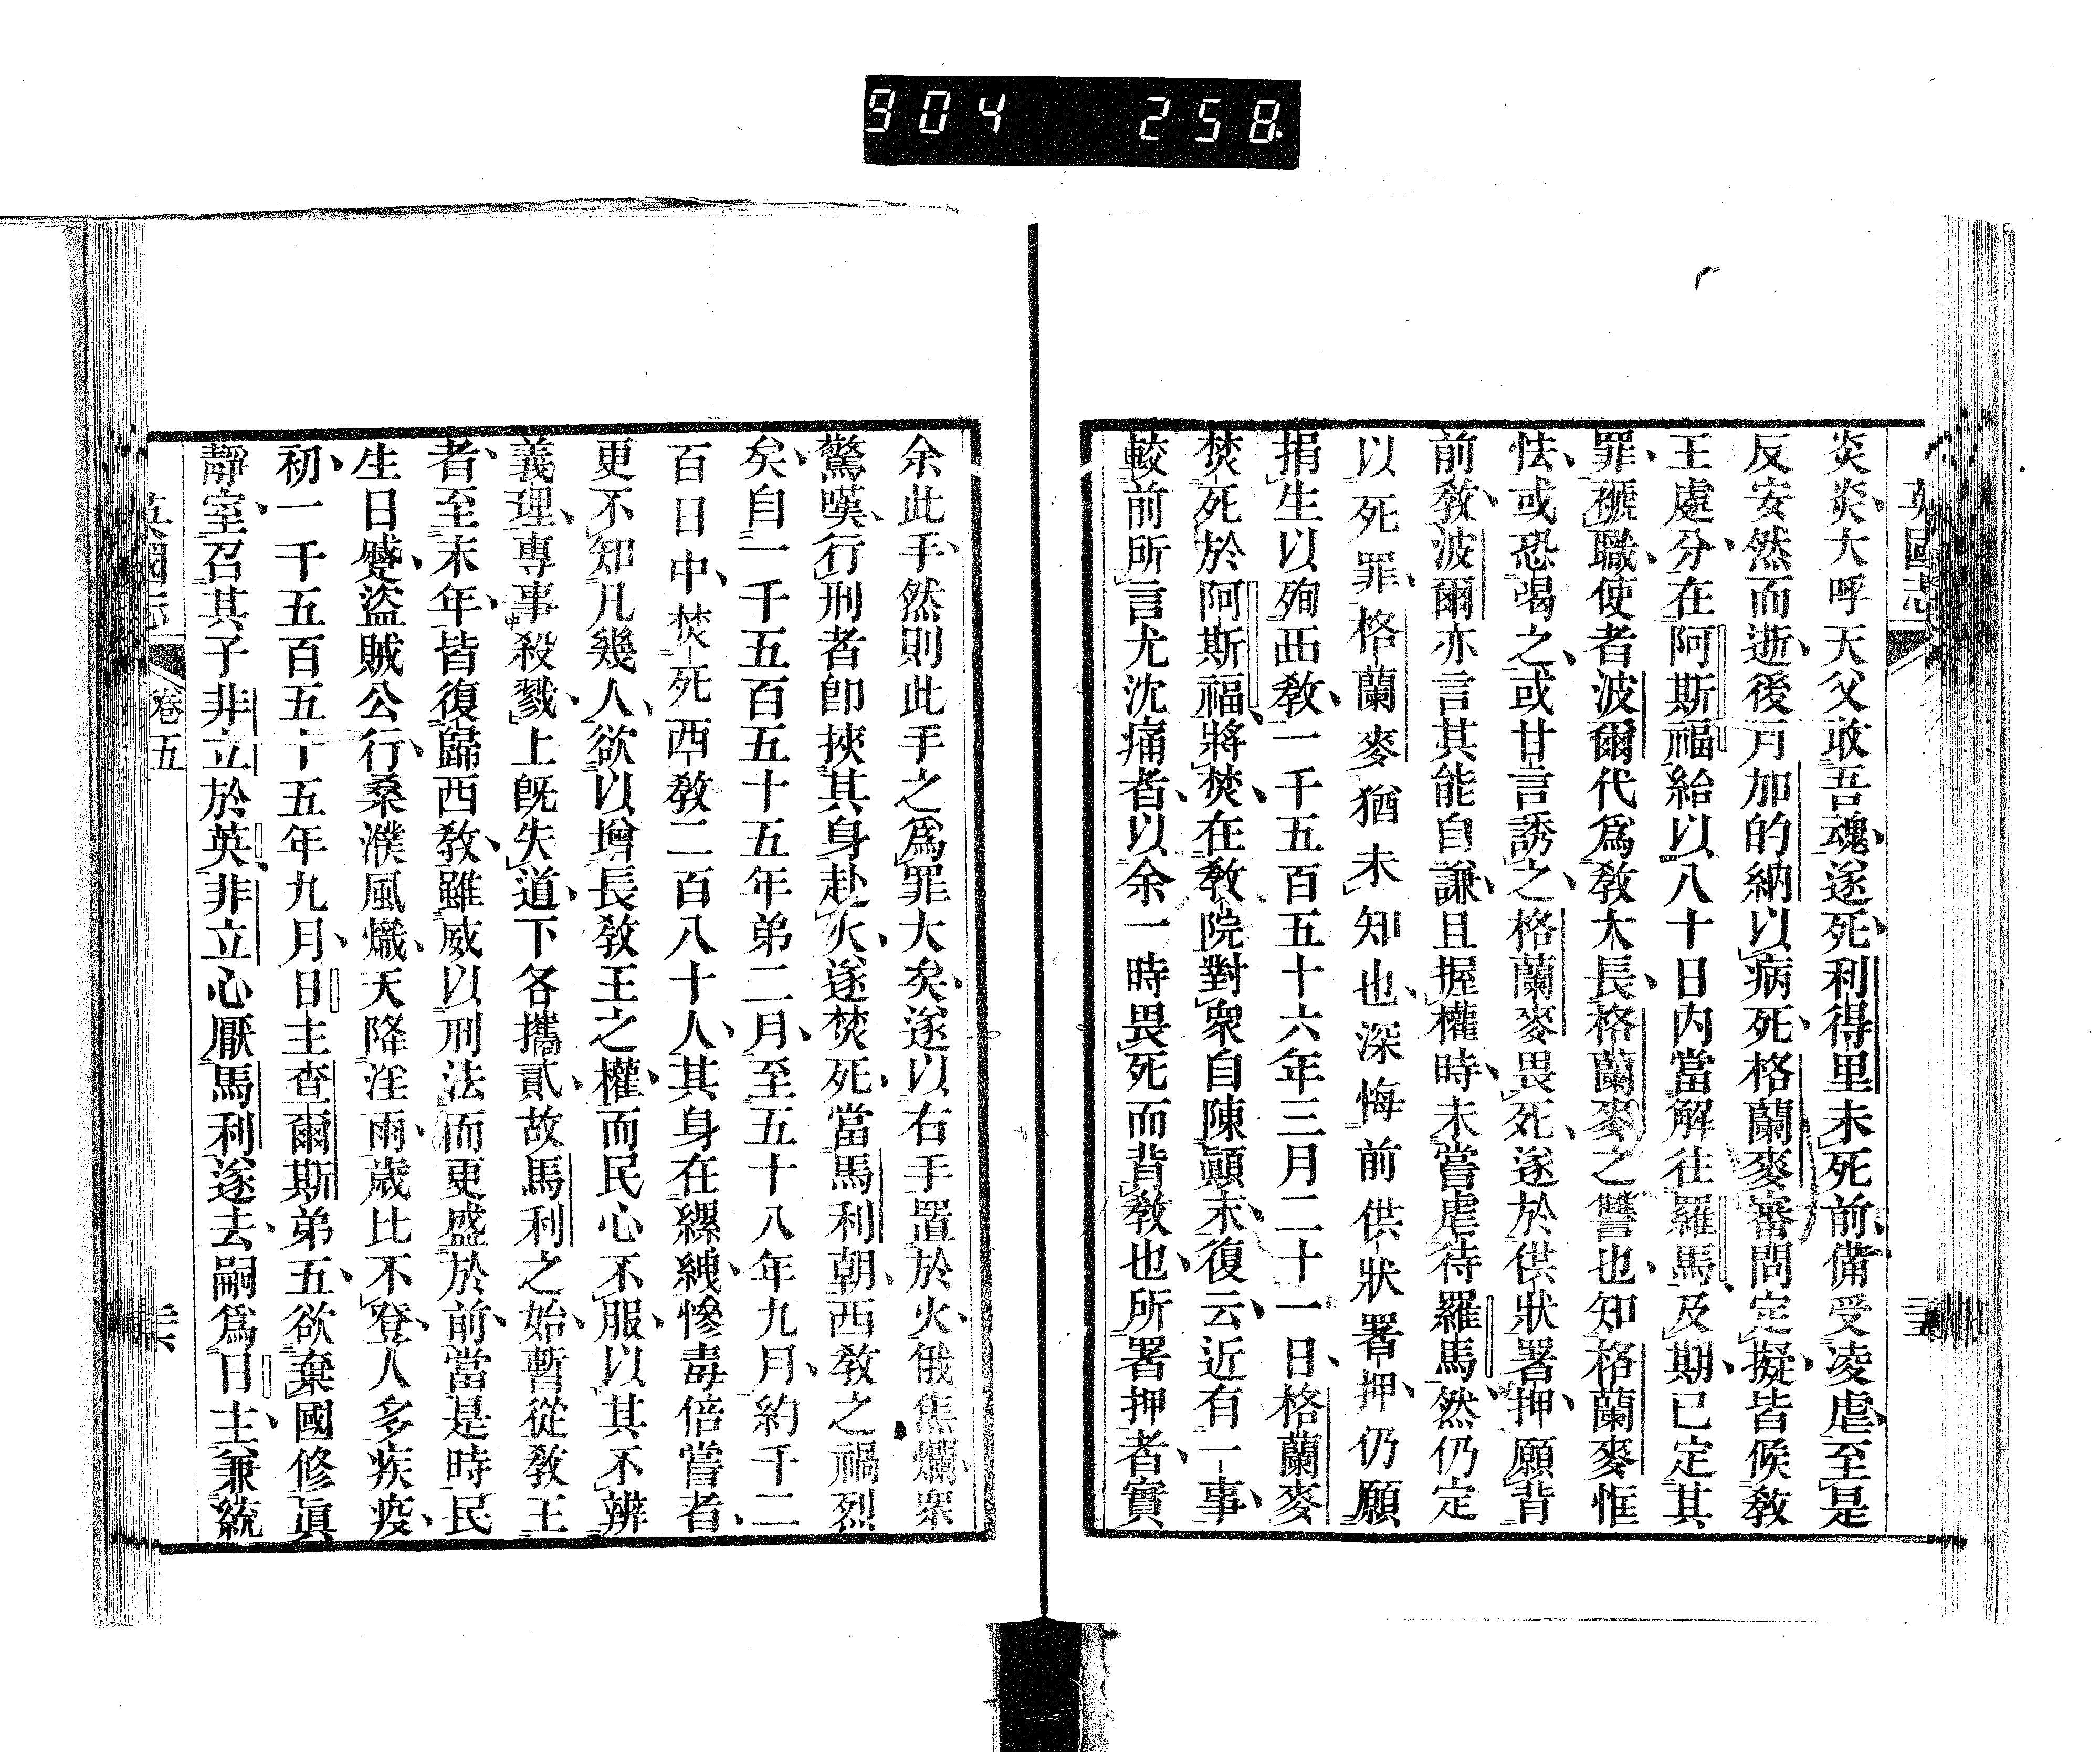 904 258
英國志
炎炎大呼天父敢吾魂遂死利得里未死前備受凌虐至是
反安然而逝後月加的納以病死格蘭麥審問定擬皆候敎
王處分在阿斯福紿以八十日內當解往羅馬及期已定其
罪褫職使者波爾代爲敎大長格蘭麥之讐也知格蘭麥恇
怯或恐喝之或甘言誘之格蘭麥畏死遂於供狀署押願背
前敎波爾亦言其能自謙且握權時未嘗虐待羅馬然仍定
以死罪格蘭麥猶未知也深悔前供狀署押仍願
捐生以殉西敎一千五百五十六年三月二十一日格蘭麥
焚死於阿斯福將焚在敎院對衆自陳顚末復云近有一事
較前所言尤沈痛者以余一時畏死而背敎也所署押者實
余此手然則此手之爲罪大矣遂以右手置於火俄焦爛衆
驚嘆行刑者卽挾其身赴火遂焚死當馬利朝西敎之禍烈
矣自一千五百五十五年弟二月至五十八年九月約千二
百日中焚死西敎二百八十人其身在縲絏慘毒倍嘗者
更不知凡幾人欲以增長敎王之權而民心不服以其不辨
義理專事殺戮上旣失道下各攜貳故馬利之始暫從敎王
者至末年皆復歸西敎雖威以刑法而更盛於前當是時民
生日蹙盜賊公行桑濮風熾天降淫雨歲比不登人多疾疫
初一千五百五十五年九月日主查爾斯弟五欲棄國修眞
靜室召其子非立於英非立心厭馬利遂去嗣爲日主兼統
英國志
卷五